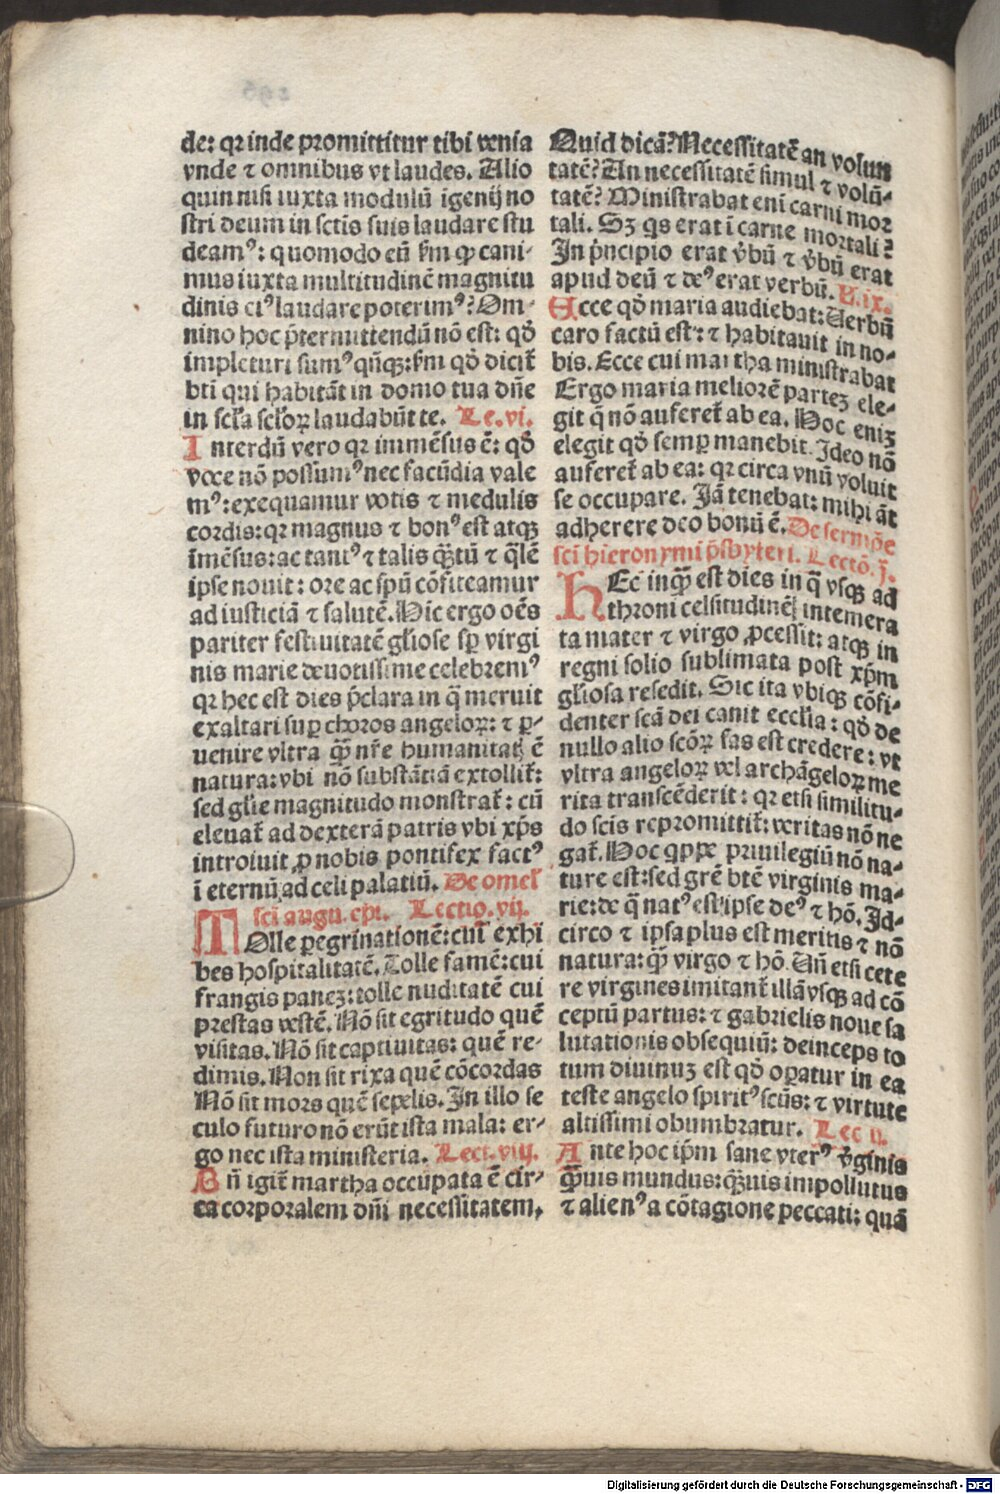 de: qꝛ inde promittitur tibi venia
vnde ⁊ omnibus vt laudes. Alio
quin nisi iuxta modulū igenij no
stri deum in sctis suis laudare stu
deamꝰ: quomodo eū ẜm ꝙ cani-
mus iuxta multitudinē magnitu
dinis eiꝰ laudare poterimꝰ? Om-
nino hoc p̄termittendū nō est: qd̓
impleturi sumꝰ qn̄qꝫ: ẜm qd̓ dicit̄
bti qui habitāt in domo tua dn̄e
in scl̓a scl̓oꝝ laudabūt te. Le. vi.
Interdū vero qꝛ immēsus ē: qd̓
voce nō possumꝰ nec facūdia vale
mꝰ: exequamur votis ⁊ medulis
cordis: qꝛ magnus ⁊ bonꝰ est atqꝫ
īmēsus: ac tantꝰ ⁊ talis qͣꝫtū ⁊ qͣlē
ipse nouit: ore ac spū cōfiteamur
ad iusticiā ⁊ salutē. Hic ergo oēs
pariter festiuitatē gl̓iose sp̄ virgi
nis marie deuotissime celebremꝰ
qꝛ hec est dies p̄clara in q̄ meruit
exaltari sup̱ choros angeloꝝ: ⁊ p̱-
uenire vltra qͣꝫ nr̄e humanitatꝭ ē
natura: vbi nō substātiā extollit̄:
sed gl̓ie magnitudo monstrat̄: cū
eleuat̄ ad dexterā patris vbi xp̄s
introiuit ꝓ nobis pontifex factꝰ
ī eternū ad celi palatiū. De omel̓
sci augu. epi. Lectio. vij.
TOlle peregrinationē: cui exhi
bes hospitalitatē. Tolle famē: cui
frangis panez: tolle nuditatē cui
prestas vestē. Nō sit egritudo quē
visitas. Nō sit captiuitas: quē re-
dimis. Non sit rixa quē cōcordas
Nō sit mors quē sepelis. In illo se
culo futuro nō erūt ista mala: er-
go nec ista ministeria. Lect. viij.
Bn̄ igit̄ martha occupata ē cir-
ca corporalem dn̄i necessitatem.
Quid dicā? Necessitatē an volun
tatē? An necessitatē simul ⁊ volū-
tatē? Ministrabat eni carni mor
tali. Sꝫ qs erat ī carne mortali?
In p̓ncipio erat v̓bū ⁊ v̓bū erat
apud deū ⁊ deꝰ erat verbū. L. ix.
Ecce qd̓ maria audiebat: Verbū
caro factū est: ⁊ habitauit in no-
bis. Ecce cui martha ministrabat
Ergo maria meliorē partez ele-
git q̄ nō auferet̄ ab ea. Hoc eniz
elegit qd̓ semp̱ manebit. Ideo nō
auferet̄ ab ea: qꝛ circa vnū voluit
se occupare. Jā tenebat: mihi āt
adherere deo bonū ē. De sermōe
sci hieronymi p̄sbyteri. Lectō. j.
hEc inqͣꝫ est dies in q̄ vsqꝫ ad
throni celsitudinē intemera
ta mater ⁊ virgo ꝓcessit: atqꝫ in
regni solio sublimata post xp̄m
gl̓iosa resedit. Sic ita vbiqꝫ cōfi-
denter scā dei canit eccl̓ia: qd̓ de
nullo alio scōꝝ fas est credere: vt
vltra angeloꝝ vel archāgeloꝝ me
rita transcēderit: qꝛ etsi similitu-
do scis repromittit̄: veritas nō ne
gat̄. Hoc qppe priuilegiū nō na-
ture est: sed grē btē virginis ma-
rie: de q̄ natꝰ est ipse deꝰ ⁊ hō. Id-
circo ⁊ ipsa plus est meritis ⁊ nō
natura: qͣꝫ virgo ⁊ hō. Un̄ etsi cete
re virgines imitant̄ illā vsqꝫ ad cō
ceptū partus: ⁊ gabrielis noue sa
lutationis obsequiū: deinceps to
tum diuinuz est qd̓ op̱atur in ea
teste angelo spiritꝰ scūs: ⁊ virtute
altissimi obumbratur. Lec ij.
Ante hoc ip̄m sane vterꝰ v̓ginis
qͣꝫuis mundus: qͣꝫuis impollutus
⁊ alienꝰ a cōtagione peccati: quā
Digitalisierung gefördert durch die Deutsche Forschungsgemeinschaft - DFG